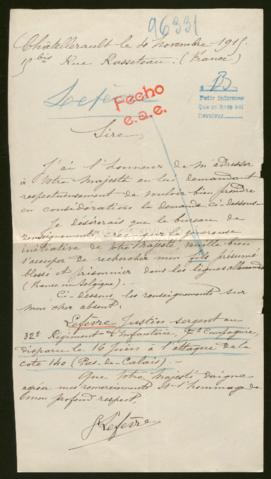 96331
Châtellerault le 4 novembre 1915
15 bis Rue Rasseteau. (France)
B
Pedir informes
Lefèvre
Fecho
e.a.e.
Sire,
J'ai l'honneur de m'adresser
à Votre Majesté en lui demandant
respectueusement de vouloir bien prendre
en considération la demande ci-dessous
Je désirerais que le bureau de
renseignements créé par la généreuse
initiative de Votre Majesté veuille bien
s'occuper de rechercher mon fils présumé
blessé et prisonnier dans les lignes allemandes
(France ou Belgique).
Ci-dessous les renseignements sur
mon cher absent.
Lefèvre Justin sergent au
32e Régiment d'Infanterie, Compagnie,
disparu le 16 juin à l'attaque de la
cote 140 (Pas-de-Calais).
Que Votre Majesté daigne
agréer mes remerciements et l'hommage de
mon profond respect.
Lefèvre